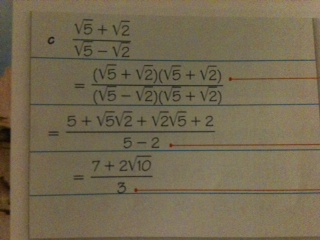 c (√5 + √2)/(√5 − √2)
= (√5 + √2)(√5 + √2)/(√5 − √2)(√5 + √2)
= (5 + √5√2 + √2√5 + 2)/(5 − 2)
= (7 + 2√10)/3